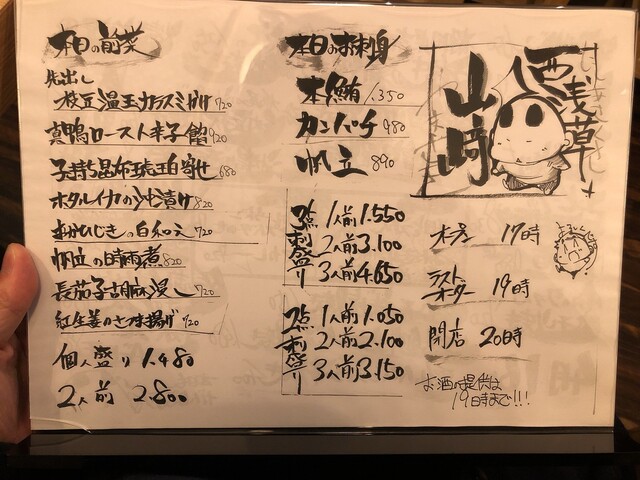 本日の前菜
先出し
枝豆温玉カラスミがけ 720
真鴨ロースト辛子餡 920
子持ち昆布琥珀寄せ 680
ホタルイカの沖漬け 820
おかひじきの白和え 720
帆立の時雨煮 820
長茄子胡麻浸し 720
紅生姜のさつま揚げ 720
個人盛り 1.480
2人前 2.800
本日のお刺身
本鮪 1.350
カンパチ 980
帆立 890
3点刺盛り
1人前 1.550
2人前 3.100
3人前 4.650
2点刺盛り
1人前 1.050
2人前 2.100
3人前 3.150
西浅草
山﨑
オープン 17時
ラストオーダー 19時
閉店 20時
お酒の提供は
19時まで!!!